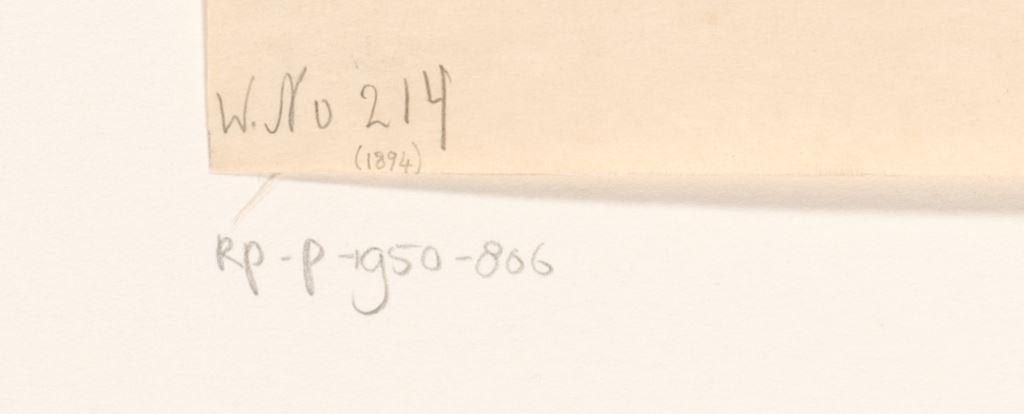 W. No 214
(1894)
RP-P-1950-806